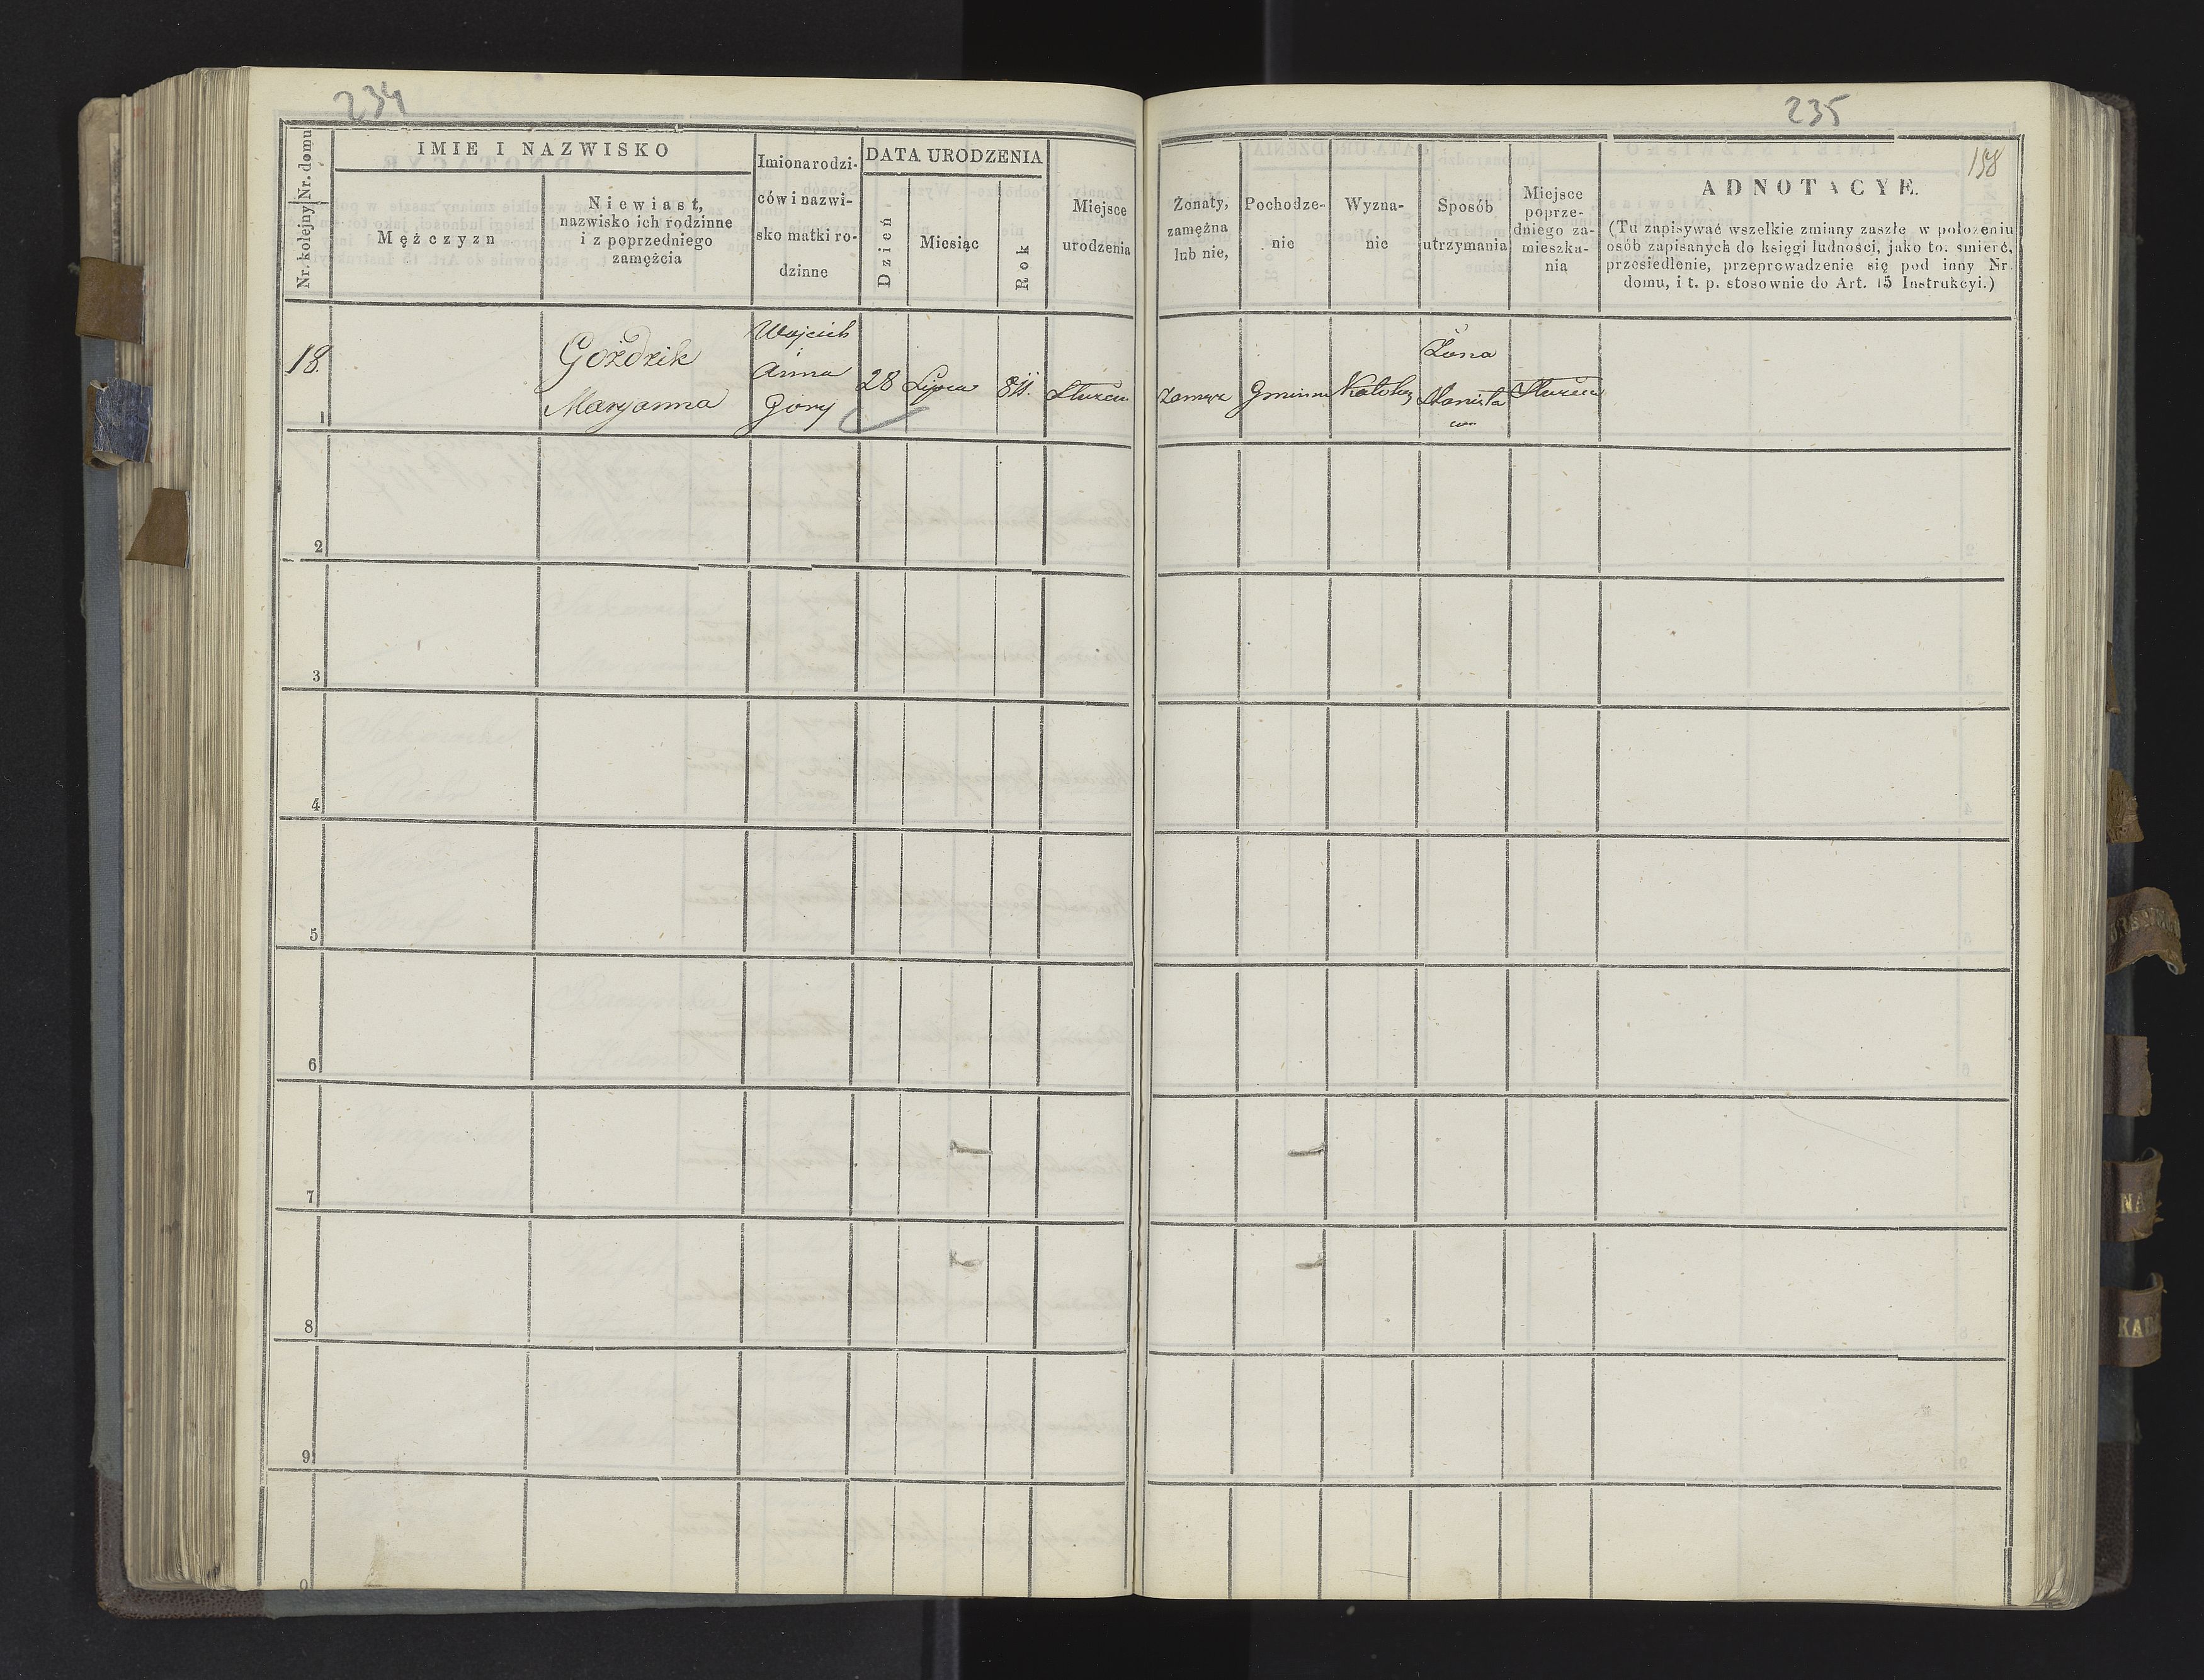 234
Nr. kolejny Nr. domu
IMIE I NAZWISKO
Mężczyzn
Niewiast,
nazwisko ich rodzinne
i z poprzedniego
zamężcia
Imiona rodzi-
ców i nazwi-
sko matki ro-
dzinne
DATA URODZENIA
Dzień
Miesiąc
Rok
Miejsce
urodzenia
18.
1
Goździk
Maryanna
Wojciech
Anna
Góry
28
Lipca
Zamęż
2
3
4
5
6
7
8
9
0
235
158
Żonaty,
zamężna
lub nie,
Pochodze-
nie
Wyzna-
nie
Sposób
utrzymania
Miejsce
poprze-
dniego za-
mieszka-
nia
ADNOTACYE.
(Tu zapisywać wszelkie zmiany zaszłe w położeniu
osób zapisanych do księgi ludności, jako to: śmierć,
przesiedlenie, przeprowadzenie się pod inny Nr.
domu, i t. p. stosownie do Art. 15 Instrukcyi.)
Gminne
Żona
NA